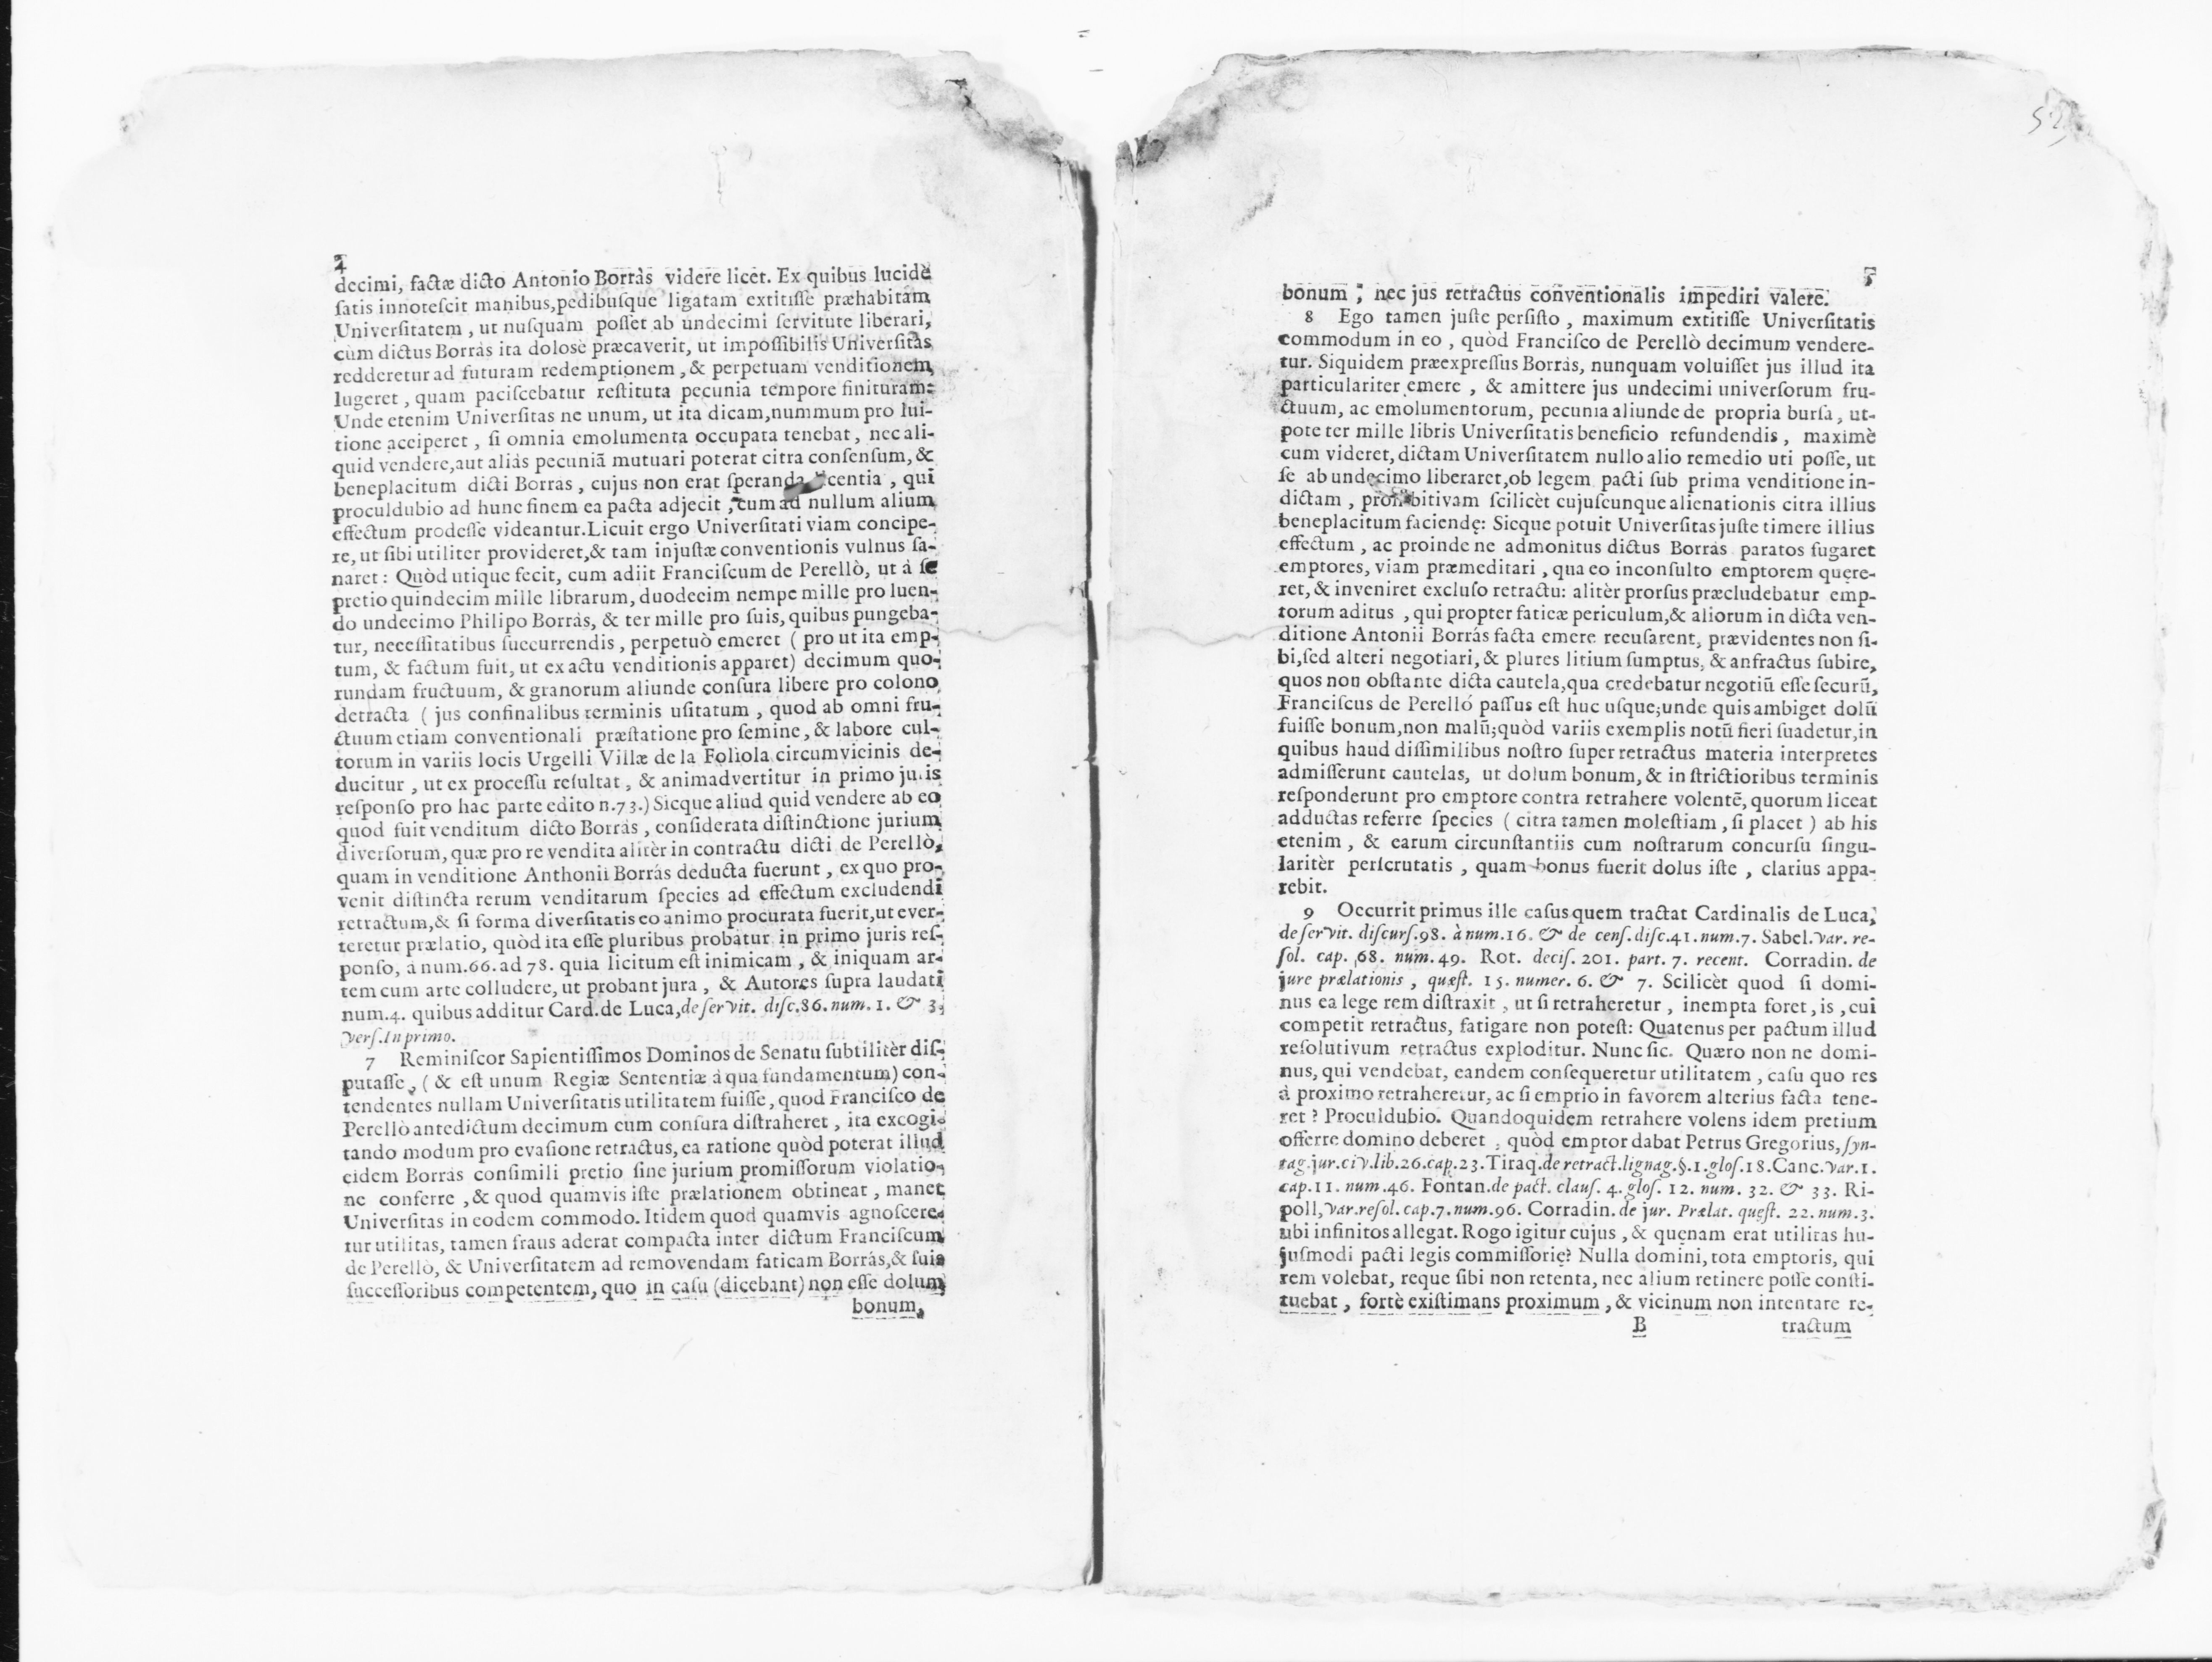 4
decimi, factæ dicto Antonio Borràs videre licet. Ex quibus lucidè
satis innotescit manibus,pedibusque ligatam extitisse præhabitam
Universitatem, ut nusquam posset ab undecimi servitute liberari,
cùm dictus Borràs ita dolosè præcaverit, ut impossibilis Universitas
redderetur ad futuram redemptionem, & perpetuam venditionem
lugeret, quam paciscebatur restituta pecunia tempore finituram:
Unde etenim Universitas ne unum, ut ita dicam,nummum pro lui-
tione acciperet, si omnia emolumenta occupata tenebat, nec ali-
quid vendere,aut aliàs pecuniã mutuari poterat citra consensum, &
beneplacitum dicti Borràs, cujus non erat speranda centia, qui
proculdubio ad hunc finem ea pacta adjecit, cum ad nullum alium
effectum prodesse videantur.Licuit ergo Universitati viam concipe-
re, ut sibi utiliter provideret,& tam injustæ conventionis vulnus sa-
naret: Quòd utique fecit, cum adiit Franciscum de Perellò, ut à se
pretio quindecim mille librarum, duodecim nempe mille pro luen-
do undecimo Philipo Borràs, & ter mille pro suis, quibus pungeba-
tur, necessitatibus succurrendis, perpetuò emeret ( pro ut ita emp-
tum, & factum fuit, ut ex actu venditionis apparet) decimum quo-
rundam fructuum, & granorum aliunde consura libere pro colono
detracta ( jus confinalibus terminis usitatum, quod ab omni fru-
ctuum etiam conventionali præstatione pro semine, & labore cul-
torum in variis locis Urgelli Villæ de la Foliola circumvicinis de-
ducitur, ut ex processu resultat, & animadvertitur in primo juris
responso pro hac parte edito n.73.) Sicque aliud quid vendere ab eo
quod fuit venditum dicto Borràs, considerata distinctione jurium
diversorum, quæ pro re vendita alitèr in contractu dicti de Perellò,
quam in venditione Anthonii Borràs deducta fuerunt, ex quo pro-
venit distincta rerum venditarum species ad effectum excludendi
retractum,& si forma diversitatis eo animo procurata fuerit,ut ever-
teretur prælatio, quòd ita esse pluribus probatur in primo juris res-
ponso, à num.66. ad 78. quia licitum est inimicam, & iniquam ar-
tem cum arte colludere, ut probant jura, & Autores supra laudati
num.4. quibus additur Card.de Luca,de servit. disc.86. num. 1. & 3.
vers.In primo.
7 Reminiscor Sapientissimos Dominos de Senatu subtilitèr dis-
putasse, ( & est unum Regiæ Sententiæ à qua fundamentum) con-
tendentes nullam Universitatis utilitatem fuisse, quod Francisco de
Perellò antedictum decimum cum consura distraheret, ita excogi-
tando modum pro evasione retractus, ea ratione quòd poterat illud
eidem Borràs consimili pretio sine jurium promissorum violatio-
ne conferre, & quod quamvis iste prælationem obtineat, manet
Universitas in eodem commodo. Itidem quod quamvis agnoscere-
tur utilitas, tamen fraus aderat compacta inter dictum Franciscum
de Perellò, & Universitatem ad removendam faticam Borràs,& suis
successoribus competentem, quo in casu (dicebant) non esse dolum
bonum,
5
bonum; nec jus retractus conventionalis impediri valere.
8 Ego tamen juste persisto, maximum extitisse Universitatis
commodum in eo, quòd Francisco de Perellò decimum vendere-
tur. Siquidem præexpressus Borràs, nunquam voluisset jus illud ita
particulariter emere, & amittere jus undecimi universorum fru-
ctuum, ac emolumentorum, pecunia aliunde de propria bursa, ut-
pote ter mille libris Universitatis beneficio refundendis, maximè
cum videret, dictam Universitatem nullo alio remedio uti posse, ut
se ab undecimo liberaret,ob legem pacti sub prima venditione in-
dictam, prohibitivam scilicèt cujuscunque alienationis citra illius
beneplacitum faciendę: Sicque potuit Universitas juste timere illius
effectum, ac proinde ne admonitus dictus Borràs paratos fugaret
emptores, viam præmeditari, qua eo inconsulto emptorem quere-
ret, & inveniret excluso retractu: alitèr prorsus præcludebatur emp-
torum aditus, qui propter faticæ periculum,& aliorum in dicta ven-
ditione Antonii Borrás facta emere recusarent, prævidentes non si-
bi,sed alteri negotiari, & plures litium sumptus, & anfractus subire,
quos non obstante dicta cautela,qua credebatur negotiũ esse securũ,
Franciscus de Perelló passus est huc usque;unde quis ambiget dolũ
fuisse bonum,non malũ;quòd variis exemplis notũ fieri suadetur,in
quibus haud dissimilibus nostro super retractus materia interpretes
admisserunt cautelas, ut dolum bonum, & in strictioribus terminis
responderunt pro emptore contra retrahere volentẽ, quorum liceat
adductas referre species ( citra tamen molestiam, si placet ) ab his
etenim, & earum circunstantiis cum nostrarum concursu singu-
laritèr perscrutatis, quam bonus fuerit dolus iste, clarius appa-
rebit.
9 Occurrit primus ille casus quem tractat Cardinalis de Luca,
de servit. discurs.98. à num.16. & de cens.disc.41.num.7. Sabel.var. re-
sol. cap. 68. num. 49. Rot. decis. 201. part. 7. recent. Corradin. de
jure prælationis, quæst. 15. numer. 6. & 7. Scilicèt quod si domi-
nus ea lege rem distraxit, ut si retraheretur, inempta foret, is, cui
competit retractus, fatigare non potest: Quatenus per pactum illud
resolutivum retractus exploditur. Nunc sic. Quæro non ne domi-
nus, qui vendebat, eandem consequeretur utilitatem, casu quo res
à proximo retraheretur, ac si emptio in favorem alterius facta tene-
ret? Proculdubio. Quandoquidem retrahere volens idem pretium
offerre domino deberet, quòd emptor dabat Petrus Gregorius, syn-
tag.jur.civ.lib.26.cap.23.Tiraq.de retract.lignag.§.1.glos.18.Canc.var.1.
cap.11. num.46. Fontan.de pact. claus. 4. glos. 12. num. 32. & 33. Ri-
poll,var.resol.cap.7.num.96. Corradin.de jur. Prælat. quęst. 22.num.3.
ubi infinitos allegat. Rogo igitur cujus, & quęnam erat utilitas hu-
jusmodi pacti legis commissorię? Nulla domini, tota emptoris, qui
rem volebat, reque sibi non retenta, nec alium retinere posse consti-
tuebat, fortè existimans proximum, & vicinum non intentare re-
B tractum